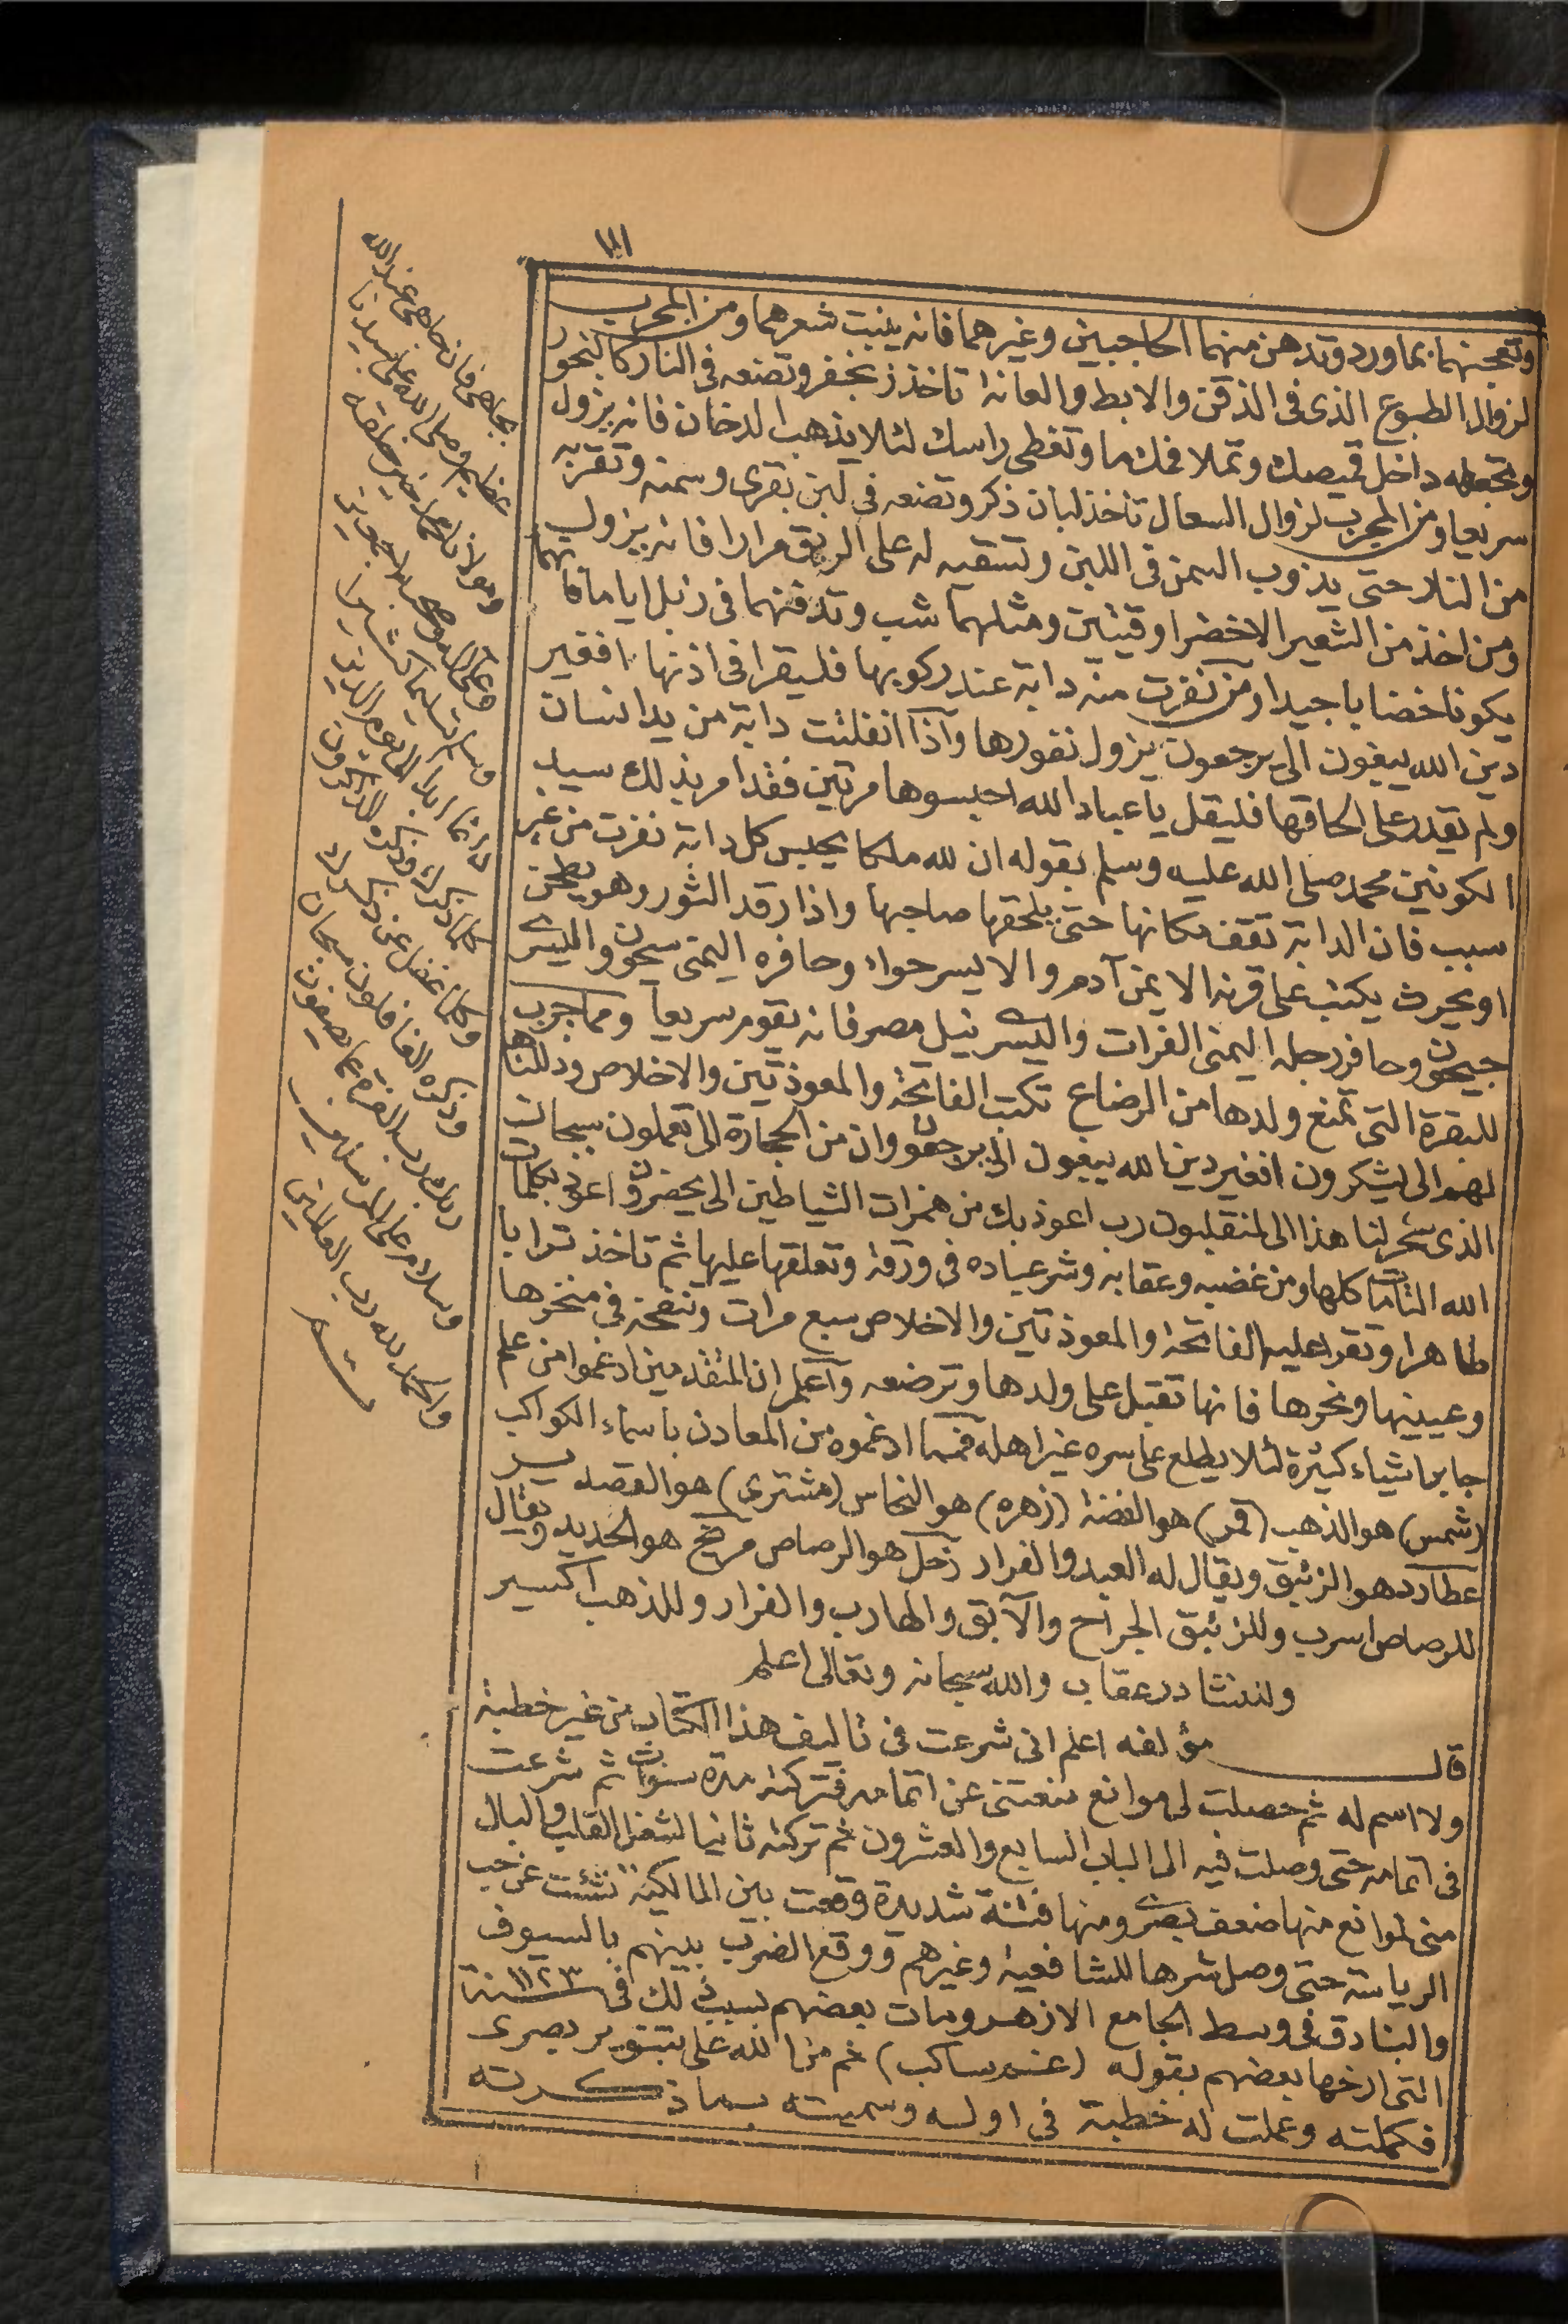 ١١١
وتعجنهما بماورد وتدهن منهما الحاجبين وغيرهما فانه ينبت شعرهما ومن المجرب
لزوال الطبوع الذى فى الذقن والابط والعانة تاخذ زنجفر وتضعه فى النار كالبخور
وتجعله داخل قميصك وتملا فمك ما وتغطى راسك لئلا يذهب الدخان فانه يزول
سريعا ومن المجرب لزوال السعال تاخذ لبان ذكر وتضعه فى لبن بقرى وسمنه وتقربه
من النار حتى يذوب السمن فى اللبن وتسقيه له على الريق مرارا فانه يزول
ومن اخذ من الشعير الاخضر اوقيتين ومثلهما شب وتدفنهما فى زبل اياما فانهما
يكونا خضابا جيدا ومن نفرت منه دابة عند ركوبها فليقرا فى اذنها افغير
دين الله يبغون الى يرجعون يزول نفورها واذا انفلتت دابة من يد انسان
ولم يقدر على الحاقها فليقل يا عباد الله احبسوها مرتين فقد امر بذلك سيد
الكونين محمد صلى الله عليه وسلم بقوله ان لله ملكا يحبس كل دابة نفرت من غير
سبب فان الدابة تقف مكانها حتى يلحقها صاحبها واذا رقد الثور وهو يطحن
او يحرث يكتب على قرنه الايمن آدم والايسر حواء وحافره اليمنى سيحون واليسرى
جيحون وحافر رجله اليمنى الفرات واليسرى نيل مصر فانه يقوم سريعا ومما جرب
للبقرة التى تمنع ولدها من الرضاع تكتب الفاتحة والمعوذتين والاخلاص وذللناها
لهم الى يشكرون افغير دين الله يبغون الى يرجعون وان من الحجارة الى تعملون سبحان
الذى سخر لنا هذا الى لمنقلبون رب اعوذ بك من همزات الشياطين الى يحضرون اعوذ بكلمات
الله التامات كلها ومن غضبه وعقابه وشر عباده فى ورقة وتعلقها عليها ثم تاخذ ترابا
طاهرا وتقرا عليه الفاتحة والمعوذتين والاخلاص سبع مرات وتنفخه فى منخرها
وعيينها ونحرها فانها تقبل على ولدها وترضعه واعلم ان المتقدمين ادغموا من علم
جابر اشياء كثيرة لئلا يطلع على سره غير اهله فمما ادغموه من المعادن باسماء الكواكب
(شمس) هو الذهب (قمر) هو الفضة (زهره) هو النحاس (مشترى) هو القصدير
عطارد هو الزئبق ويقال له العبد والفرار زحل هو الرصاص مريخ هو الحديد ويقال
للرصاص اسرب وللزئبق الجراح والآبق والهارب والفرار وللذهب اكسير
ولنشادر عقاب والله سبحانه وتعالى اعلم
قال مؤلفه اعلم انى شرعت فى تاليف هذا الكتاب من غير خطبة
ولا اسم له ثم حصلت لى موانع منعتنى عن اتمامه فتركته مدة سنوات ثم شرعت
فى اتمامه حتى وصلت فيه الى الباب السابع والعشرون ثم تركته ثانيا لشغل القلب والبال
منى لموانع منها ضعف بصرى ومنها فتنة شديدة وقعت بين المالكية نشئت عن حب
الرياسة حتى وصل شرها للشافعية وغيرهم ووقع الضرب بينهم بالسيوف
والبنادق فى وسط الجامع الازهر ومات بعضهم بسبب ذلك فى سنة ١١٢٣
التى ارخها بعضهم بقوله ( ساكب) ثم من الله على بتنوير بصرى
فكملته وعملت له خطبة فى اوله وسميته بما ذكرته
بجاهى فان جاهى عند الله
عظيم وصلى الله على سيدنا
ومولانا محمد خير خلقه
وعلى اله وصحبه اجمعين
وسلم تسليما كثيرا
دائما ابدا الى يوم الدين
كلما ذكرك وذكره الذاكرون
وكلما غفل عن ذكرك
وذكره الغافلون سبحان
ربك رب العزة عما يصفون
وسلام على المرسلين
والحمد لله رب العالمين